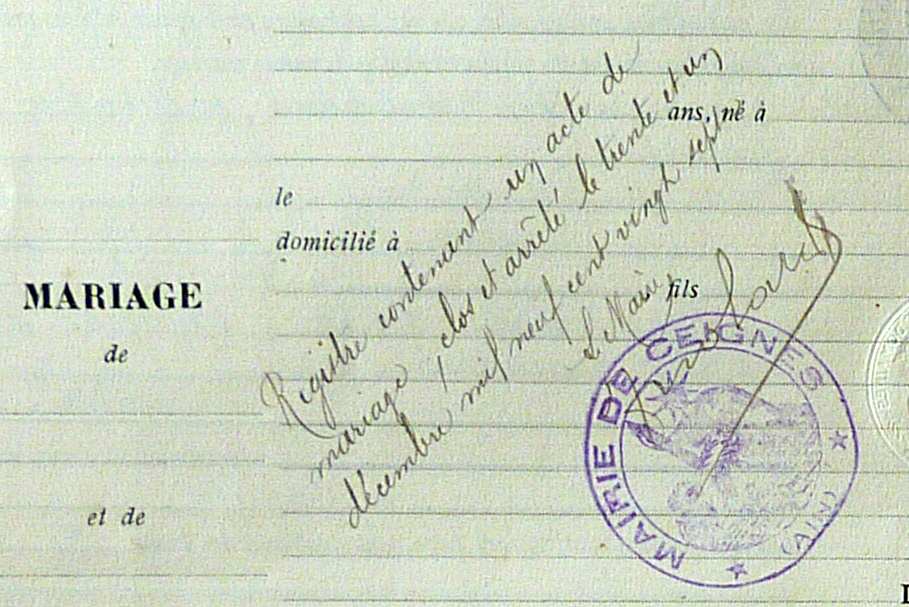 ans, né à
le
domicilié à
MARIAGE
de
fils
et de
Registre contenant un acte de
mariage, clos et arrêté le trente et un
décembre mil neuf cent vingt sept
Le Maire
MAIRIE DE CEIGNES
(AIN)